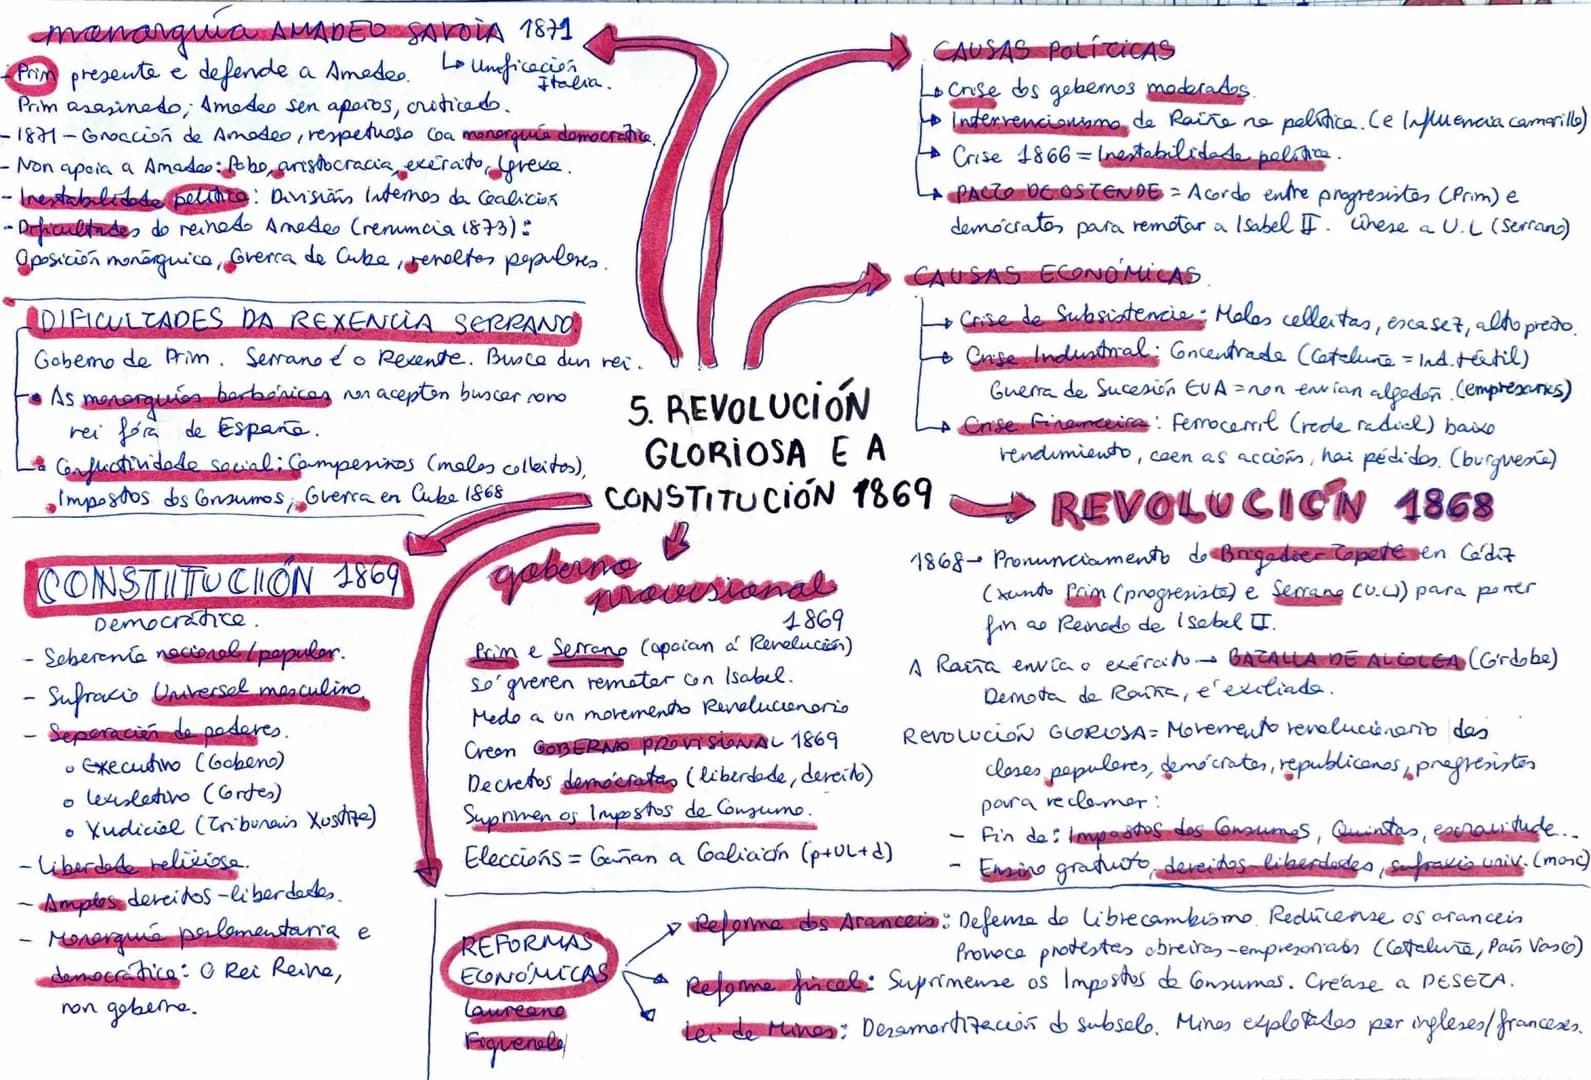 5. REVOLUCIÓN
GLORIOSA E A
CONSTITUCIÓN 1869
CAUSAS POLÍTICAS
Crise dos gobernos moderados.
Intervencionismo da Raíña na política. (e Influencia camarilla)
Crise 1866 = Inestabilidade política.
PACTO DE OSTENDE = Acordo entre progresistas (Prim) e
demócratas para rematar a Isabel II. Únese a U.L (Serrano)
CAUSAS ECONÓMICAS
Crise de Subsistencia: Malas colleitas, escasez, alto prezo.
Crise Industrial: Concentrada (Cataluña = Ind. téxtil)
Guerra de Sucesión EUA = non envían algodón. (empresarios)
Crise Financeira: Ferrocarril (rede radial) baixo
rendimiento, caen as accións, hai pédidas. (burguesía)
REVOLUCIÓN 1868
1868→ Pronunciamento do Brigadier Topete en Cádiz
(xunto Prim (progresista) e Serrano (U.L)) para poñer
fin ao Reinado de Isabel II.
A Raíña envía o exército → BATALLA DE ALCOLEA (Córdoba)
Derrota da Raíña, é exiliada.
REVOLUCIÓN GLORIOSA = Movemento revolucionario das
clases populares, demócratas, republicanos, progresistas
para reclamar:
- Fin de: Impostos dos Consumos, Quintas, escravitude...
- Ensino gratuíto, dereitos-liberdades, sufraxio univ. (masc)
goberno
provisional
1869
Prim e Serrano (apoian á Revolución)
só queren rematar con Isabel.
Medo a un movemento Revolucionario
Crean GOBERNO PROVISIONAL 1869
Decretos demócratas (liberdade, dereito)
Suprimen os Impostos de Consumo.
Eleccións = Gañan a Coalición (p+UL+d)
REFORMAS
ECONÓMICAS
Laureano
Figuerola
Reforma dos Aranceis: Defensa do librecambismo. Redúcense os aranceis
Provoca protestas obreiras-empresariais (Cataluña, País Vasco)
Reforma fiscal: Suprímense os Impostos de Consumos. Créase a PESETA.
Lei de Minas: Desamortización do subsolo. Minas explotadas por ingleses/franceses.
CONSTITUCIÓN 1869
Democrática.
- Soberanía nacional/popular.
- Sufraxio Universal masculino.
- Separación de poderes.
o Executivo (Goberno)
o Lexislativo (Cortes)
o Xudicial (Tribunais Xustiza)
- Liberdade relixiosa.
- Amplos dereitos-liberdades.
- Monarquía parlamentaria e
democrática: O Rei Reina,
non goberna.
DIFICULTADES DA REXENCIA SERRANO.
Goberno de Prim. Serrano é o Rexente. Busca dun rei.
As monarquías borbónicas non aceptan buscar novo
rei fóra de España.
Conflictividade social: Campesiños (malas colleitas),
Impostos dos Consumos, Guerra en Cuba 1868
monarquía AMADEO SAVOIA 1871
↳ Unificación
Italia.
- Prim presenta e defende a Amadeo.
Prim asasinado; Amadeo sen apoios, criticado.
- 1871 - Coroación de Amadeo, respetuoso coa monarquía democrática.
- Non apoia a Amadeo: Pobo, aristocracia, exército, Igrexa.
- Inestabilidade política: Divisións Internas da Coalición
- Dificultades do reinado Amadeo (renuncia 1873):
Oposición monárquica, Guerra de Cuba, revoltas populares.